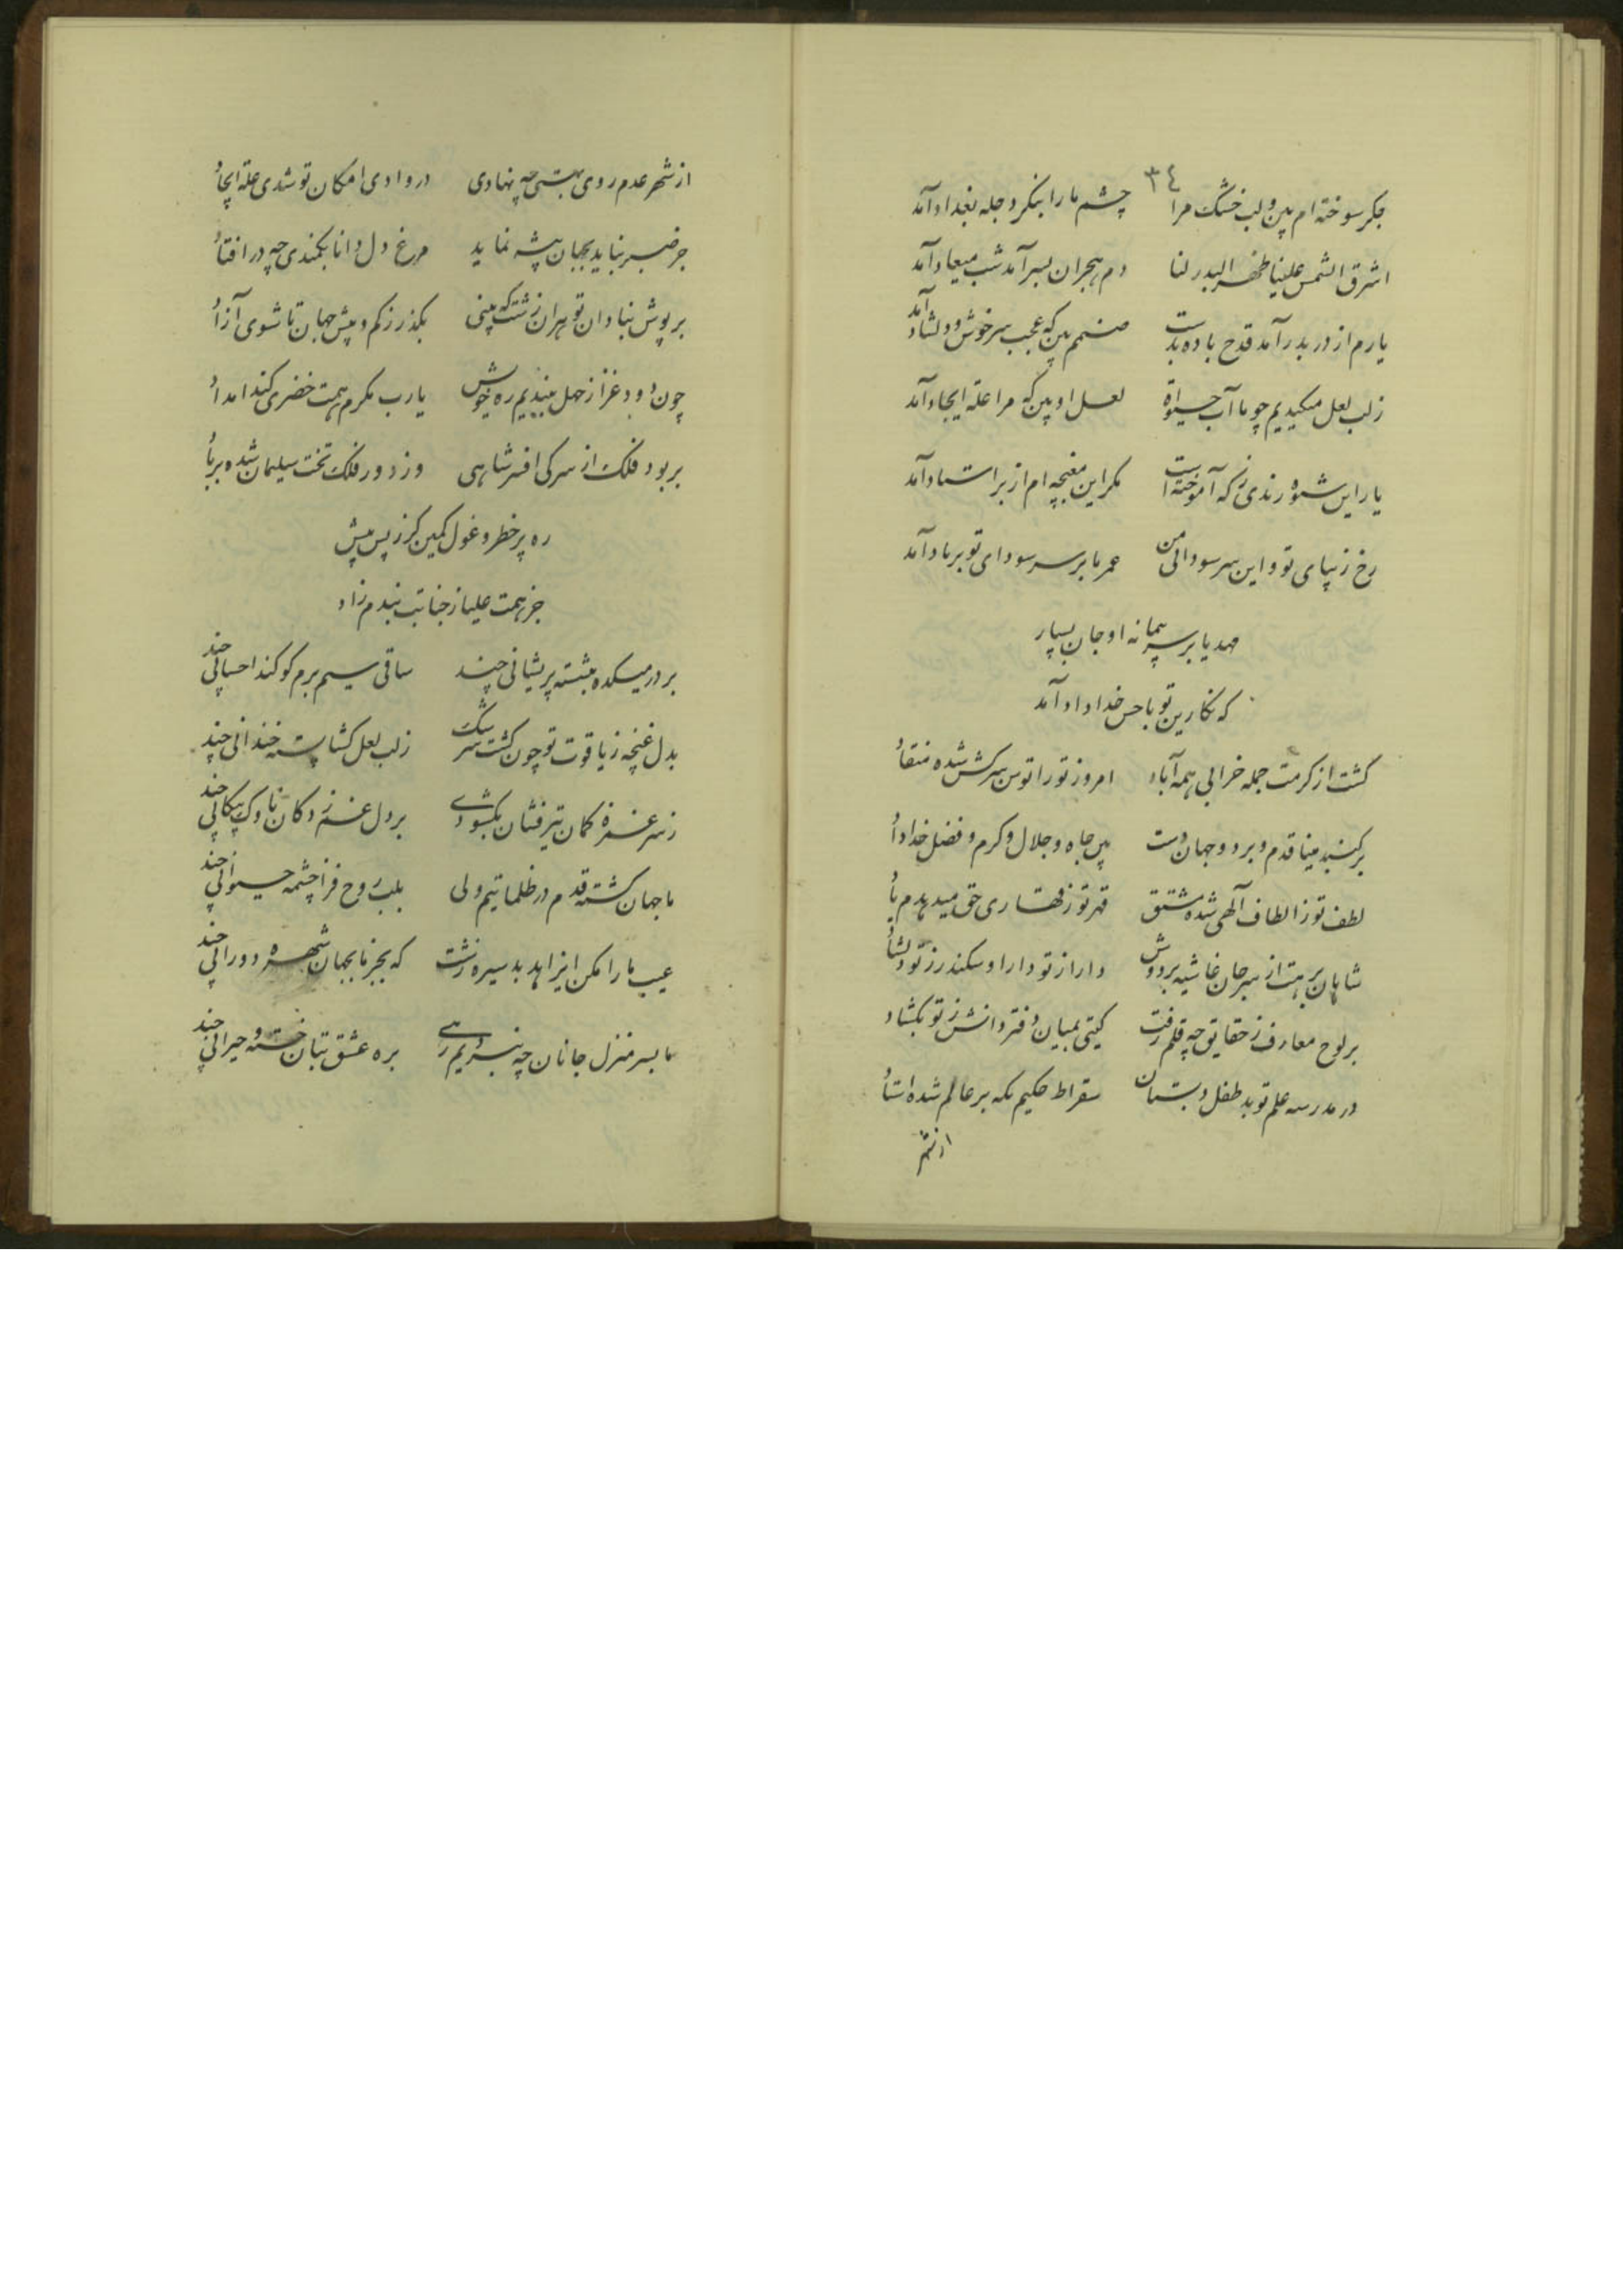 ٣٤
جکر سوخته ام بین و لب خشک مرا چشم ما را بنکر دجله بغداد آمد
اشرق الشمس علینا ظهر البدر لنا دم هجران بسر آمد شب میعاد آمد
یارم از در بدر آمد قدح باده بدست صنمم بین که عجب سرخوش و دلشاد آمد
زلب لعل مکیدیم چو ما آب حیوة لعل او بین که مرا علة ایجاد آمد
یار این شیوه رندی ز که آموخته است مکر این مغبچه ام از بر استاد آمد
رخ زیبای تو و این سر سودائی من عمر ما بر سر سودای تو بر باد آمد
بر سر پیمانه او جان بسپار
که نکارین تو با حسن خداداد آمد
کشت از کرمت جمله خرابی همه آباد امروز تو را توسن سرکش شده منقاد
بر کنبد مینا قدم و بر دو جهان دست بین جاه و جلال و کرم و فضل خداداد
لطف تو ز الطاف آلهی شده مشتق قهر تو ز قهاری حق میدهدم یاد
شاهان برهت از سر جان غاشیه بر دوش دارا ز تو دارا و سکندر ز تو دلشاد
بر لوح معارف ز حقایق چه قلم رفت کیتی بمیان دفتر دانش ز تو بکشاد
در مدرسه علم تو بد طفل دبستان سقراط حکیم که بر عالم شده استاد
از شهر
از شهر عدم روی بهستی چه نهادی در وادی امکان تو شدی علة ایجاد
جز صبر نباید بجهان پیشه نماید مرغ دل دانا بکمندی چه در افتاد
بر پوش بنادان تو هران زشت که بینی بکذر ز کم و بیش جهان تا شوی آزاد
چون دود غزا زحل ببندیم ره خویش یارب مکرم همت خضری کند امداد
بربود فلک از سر کی افسر شاهی وز دور فلک تخت سلیمان شده بر باد
ره پر خطر و غول کمین کرز پس و پیش
جز همت علیا ز جنابت نبدم زاد
بر در میکده بنشسته پریشانی چند ساقی سیم برم کو کند احسانی چند
بدل غنچه ز یاقوت تو چون کشت سرشک زلب لعل کشا پسته خندانی چند
ز سر غمزه کمان تیر فشان بکشودی بر دل غمزدکان ناوک پیکانی چند
ما جهان کشته قدم در ظلماتیم ولی بلب روح فزا چشمه حیوانی چند
عیب ما را مکن ایزاهد بد سیره زشت که بجز ما بجهان شهره دورانی چند
ما بسر منزل جانان چه نبردیم رهی بره عشق بتان خسته و حیرانی چند